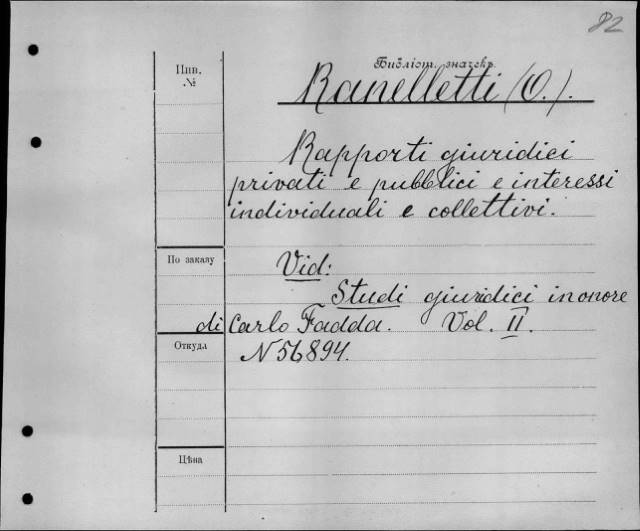 82
Инв.
№
Библіот. значекъ.
Ranelletti (O.).
Rapporti giuridici
privati e pubblici e interessi
individuali e collettivi.
По заказу
Vid:
Studi giuridici in onore
di Carlo Fadda. Vol. II.
Откуда
N 56894.
Цѣна